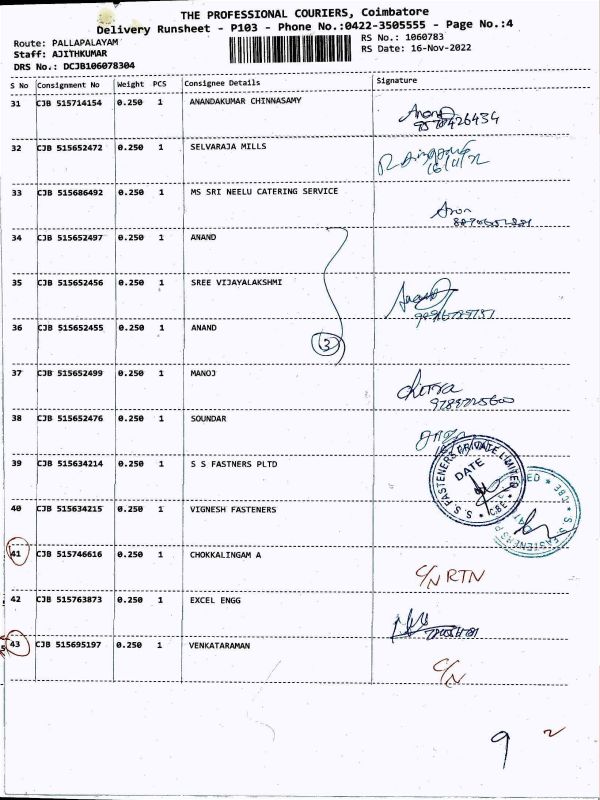 THE PROFESSIONAL COURIERS, Coimbatore
Delivery Runsheet - P103 - Phone No.:0422-3505555 - Page No.:4
Route: PALLAPALAYAM
RS No.: 1060783
Staff: AJITHKUMAR
RS Date: 16-Nov-2022
DRS No.: DCJB106078304
S No Consignment No Weight PCS Consignee Details Signature
31 CJB 515714154 0.250 1 ANANDAKUMAR CHINNASAMY
32 CJB 515652472 0.250 1 SELVARAJA MILLS
16/11/22
33 CJB 515686492 0.250 1 MS SRI NEELU CATERING SERVICE
34 CJB 515652497 0.250 1 ANAND
35 CJB 515652456 0.250 1 SREE VIJAYALAKSHMI
36 CJB 515652455 0.250 1 ANAND
3
37 CJB 515652499 0.250 1 MANOJ
38 CJB 515652476 0.250 1 SOUNDAR
39 CJB 515634214 0.250 1 S S FASTNERS PLTD
S. S. FASTENERS PRIVATE LIMITED * CBE *
DATE
40 CJB 515634215 0.250 1 VIGNESH FASTENERS
41 CJB 515746616 0.250 1 CHOKKALINGAM A C/N RTN
42 CJB 515763873 0.250 1 EXCEL ENGG
43 CJB 515695197 0.250 1 VENKATARAMAN C/N
9 2